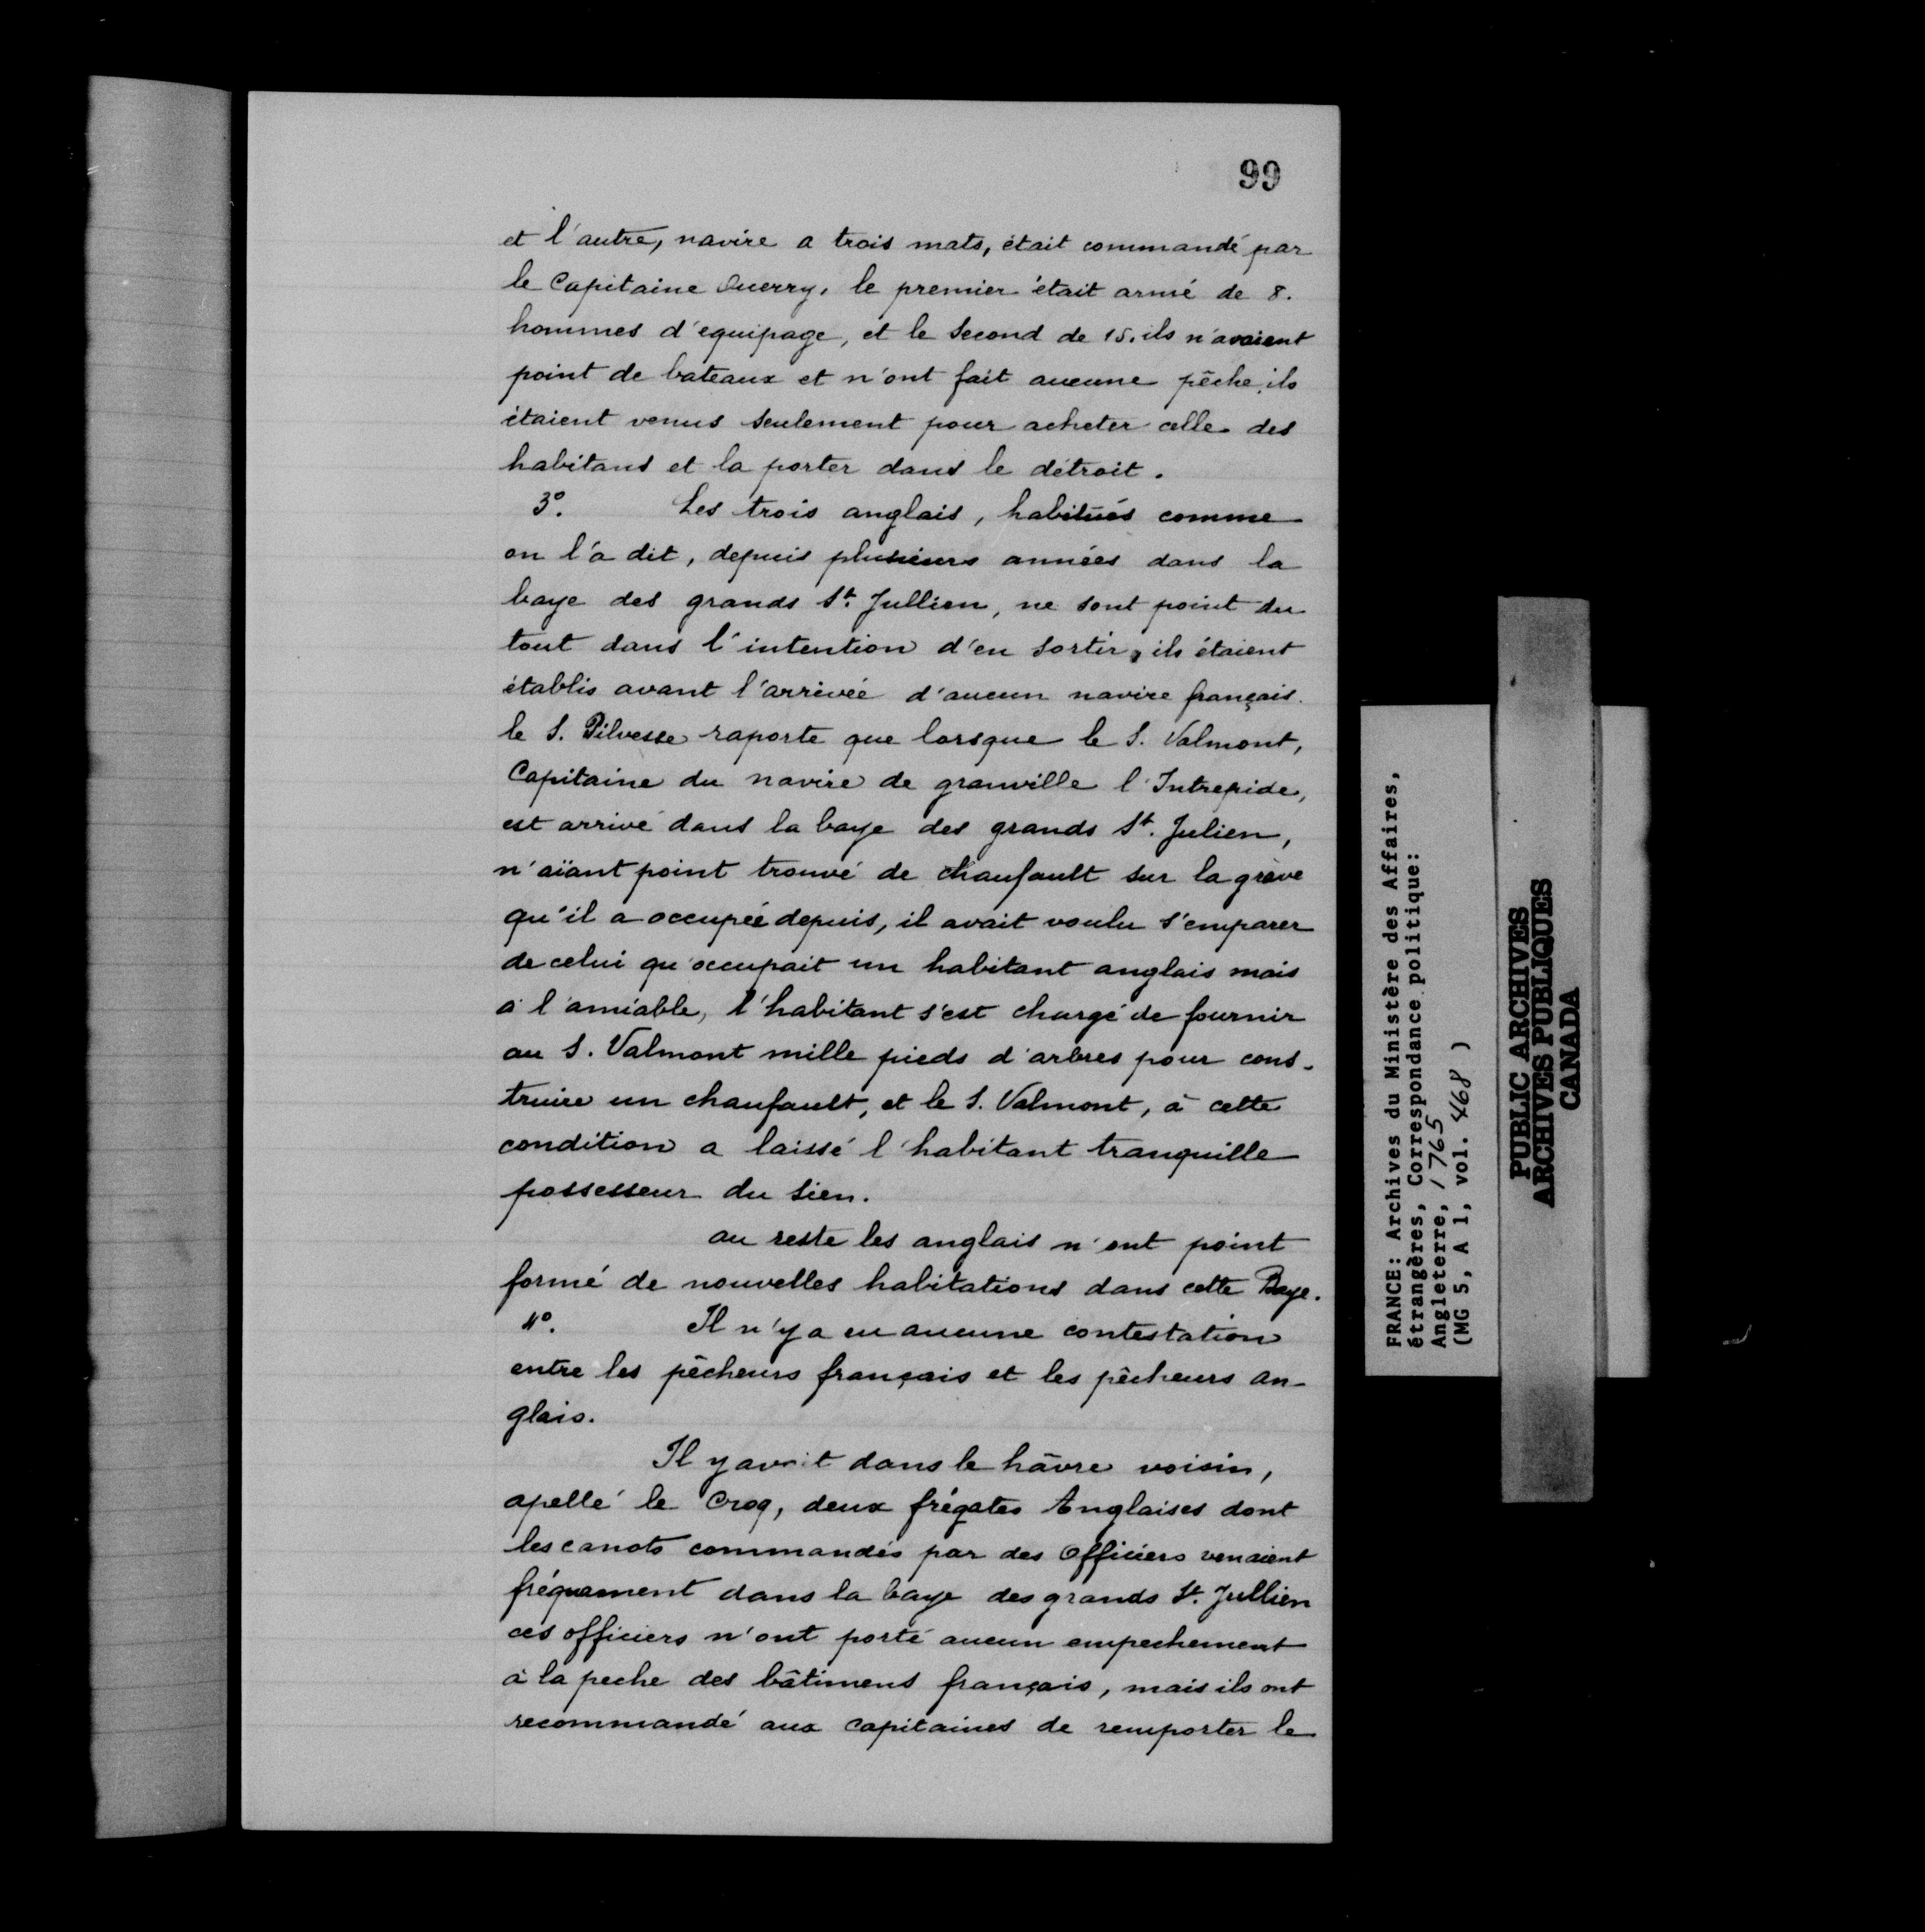 99
et l'autre, navire a trois mats, était commandé par
le Capitaine Querry, le premier était armé de 8.
hommes d'equipage, et le Second de 15. ils n'avaient
point de bateaux et n'ont fait aucune pêche, ils
étaient venus seulement pour acheter celle des
habitans et la porter dans le détroit.
3º. Les trois anglais, habitués comme
on l'a dit, depuis plusieurs années dans la
baye des grands St. Jullien, ne sont point du
tout dans l'intention d'en sortir, ils étaient
établis avant l'arrivée d'aucun navire français.
le S. Pilvesse raporte que lorsque le S. Valmont,
Capitaine du navire de granville l'Intrepide,
est arrivé dans la baye des grands St. Julien,
n'aïant point trouvé de chaufault sur la grève
qu'il a occupée depuis, il avait voulu s'emparer
de celui qu'occupait un habitant anglais mais
à l'amiable, l'habitant s'est chargé de fournir
au S. Valmont mille pieds d'arbres pour cons-
truire un chaufault, et le S. Valmont, à cette
condition a laissé l'habitant tranquille
possesseur du sien.
au reste les anglais n'ont point
formé de nouvelles habitations dans cette Baye.
4º. Il n'y a eu aucune contestation
entre les pêcheurs français et les pêcheurs an-
glais.
Il y avait dans le hâvre voisin,
apellé le Croq, deux frégates Anglaises dont
les canots commandés par des Officiers venaient
fréquament dans la baye des grands St. Jullien
ces officiers n'ont porté aucun empechement
à la peche des bâtimens français, mais ils ont
recommandé aux Capitaines de remporter le
FRANCE: Archives du Ministère des Affaires,
étrangères, Correspondance politique:
Angleterre, 1765
(MG 5, A 1, vol. 468 )
PUBLIC ARCHIVES
ARCHIVES PUBLIQUES
CANADA